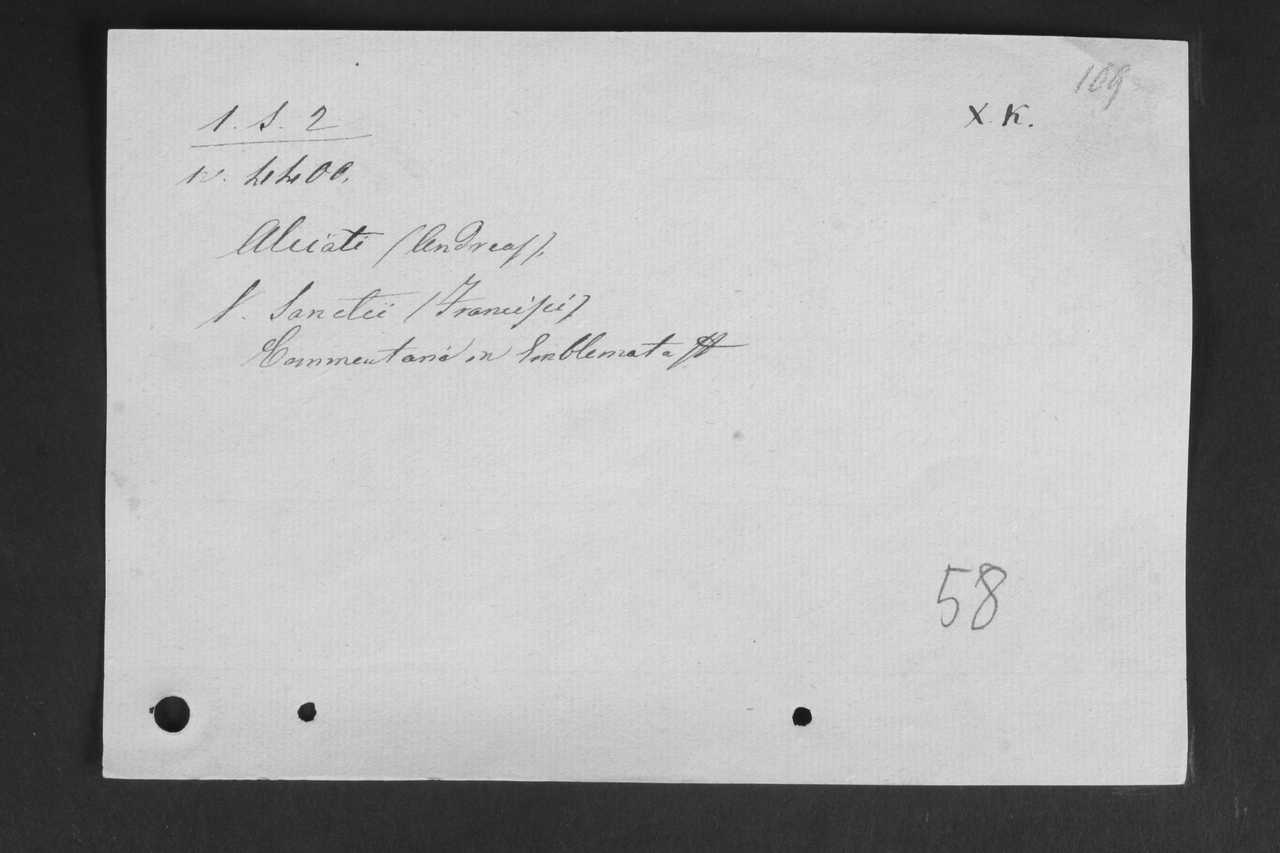 109
1. S. 2
X. K.
N. 4400.
Alciati (Andreas).
V. Sanctii (Francisci)
Commentaria in Emblemata
58